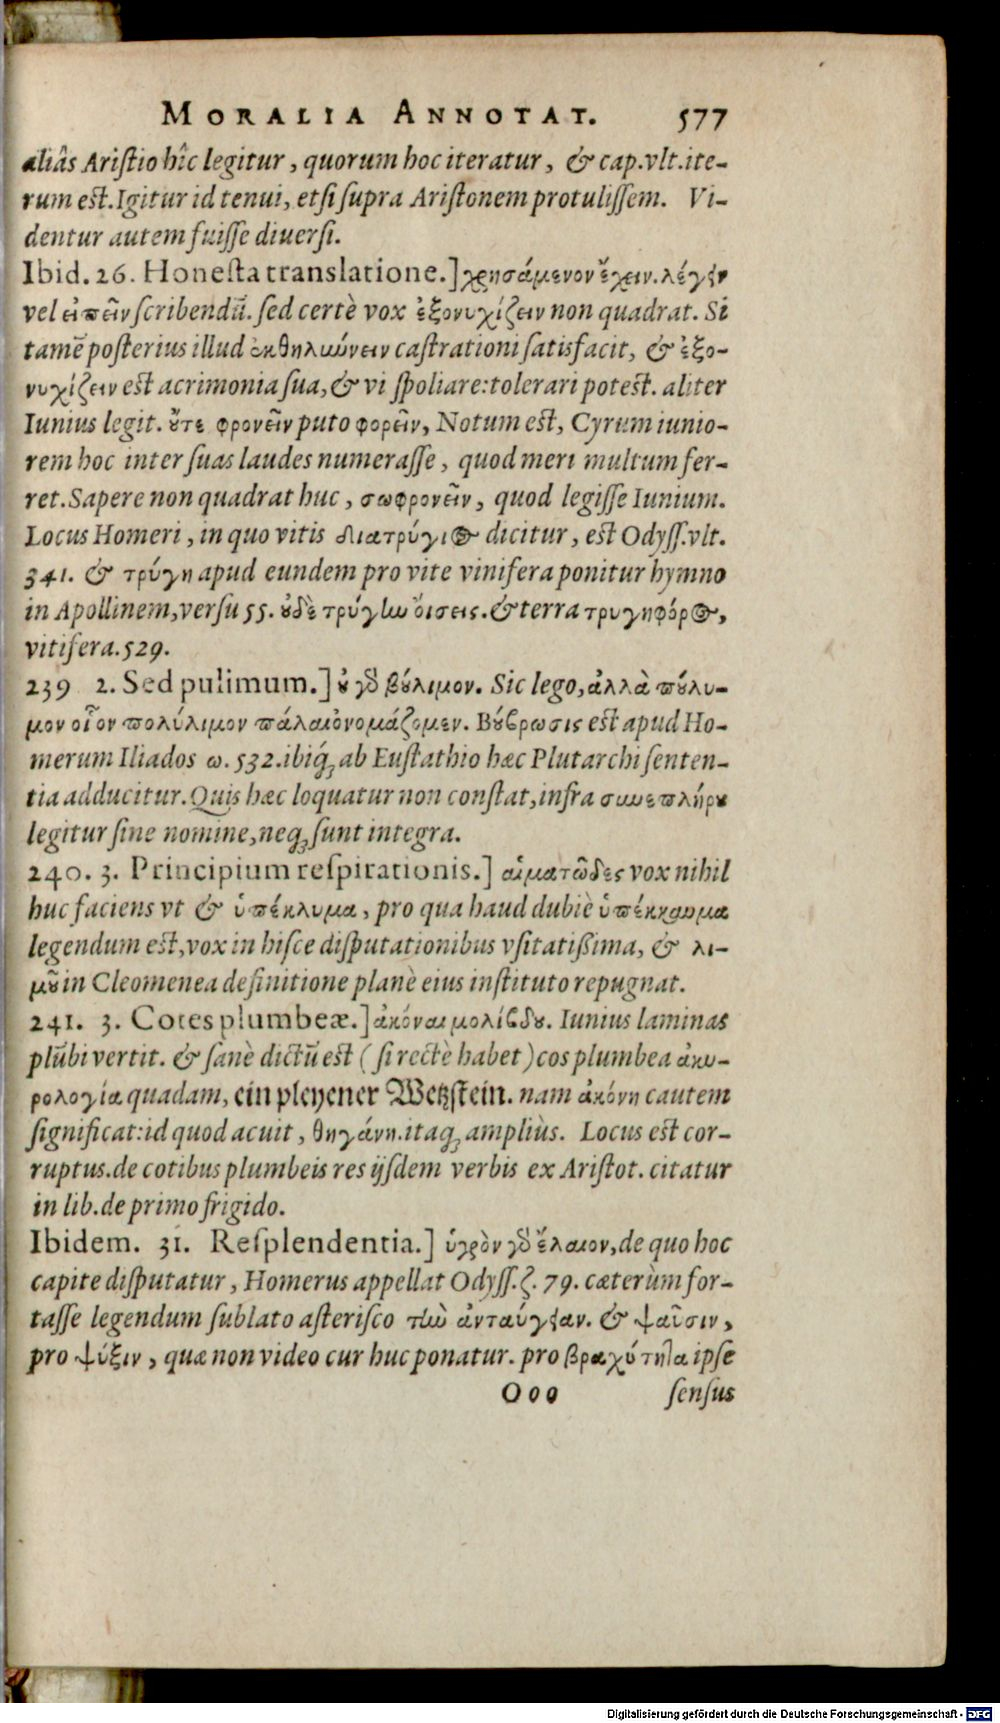 MORALIA ANNOTAT. 577
aliâs Aristio hîc legitur, quorum hoc iteratur, & cap.vlt.ite-
rum est. Igitur id tenui, etsi supra Aristonem protulissem. Vi-
dentur autem fuisse diuersi.
Ibid. 26. Honesta translatione.] χρησάμενον ἔχειν. λέγειν
vel εἰπεῖν scribendũ. sed certè vox ἐξονυχίζειν non quadrat. Si
tamẽ posterius illud ἐκθηλιώνειν castrationi satisfacit, & ἐξο-
νυχίζειν est acrimonia sua, & vi spoliare: tolerari potest. aliter
Iunius legit. ὅτε φρονεῖν puto φορεῖν, Notum est, Cyrum iunio-
rem hoc inter suas laudes numerasse, quod meri multum fer-
ret. Sapere non quadrat huc, σωφρονεῖν, quod legisse Iunium.
Locus Homeri, in quo vitis διατρύγιος dicitur, est Odyss.vlt.
341. & τρύγη apud eundem pro vite vinifera ponitur hymno
in Apollinem, versu 55. οὐδὲ τρύγην οἴσεις. & terra τρυγηφόρος,
vitifera. 529.
239 2. Sed pulimum.] οὐ γδ βούλιμον. Sic lego, ἀλλὰ πούλυ-
μον οἷον πολύλιμον πάλαι ὀνομάζομεν. Βούβρωσις est apud Ho-
merum Iliados ω. 532. ibiq́ue ab Eustathio hæc Plutarchi senten-
tia adducitur. Quis hæc loquatur non constat, infra συνεπλήρου
legitur sine nomine, neq; sunt integra.
240. 3. Principium respirationis.] αἱματῶδες vox nihil
huc faciens vt & ὑπέκλυμα, pro qua haud dubiè ὑπέκκαυμα
legendum est, vox in hisce disputationibus vsitatißima, & λι-
μοῦ in Cleomenea definitione planè eius instituto repugnat.
241. 3. Cotes plumbeæ.] ἀκόναι μολίβδου. Iunius laminas
plũbi vertit. & sanè dictũ est (si rectè habet) cos plumbea ἀκυ-
ρολογία quadam, ein pleyener Wetzstein. nam ἀκόνη cautem
significat: id quod acuit, θηγάνη. itaq; ampliùs. Locus est cor-
ruptus. de cotibus plumbeis res ijsdem verbis ex Aristot. citatur
in lib. de primo frigido.
Ibidem. 31. Resplendentia.] ὑγρὸν γδ ἔλαιον, de quo hoc
capite disputatur, Homerus appellat Odyss. ζ. 79. cæterùm for-
tasse legendum sublato asterisco τὴν ἀνταύγειαν. & ψαῦσιν,
pro ψύξιν, quæ non video cur huc ponatur. pro βραχύτητα ipse
Ooo sensus
Digitalisierung gefördert durch die Deutsche Forschungsgemeinschaft - DFG